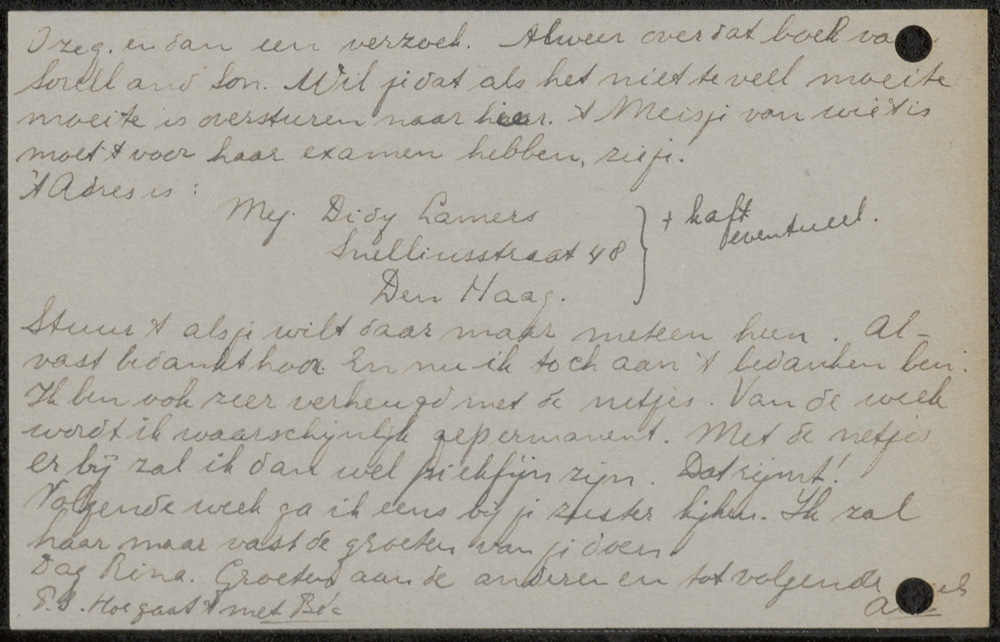 O zeg. en dan een verzoek. Alweer over dat boek va
Sorell and Son. Wil je dat als het niet te veel moeite
moeite is oversturen naar hier. 't Meisje van wie 't is
moet 't voor haar examen hebben, zie je.
't Adres is :
Mej. Didy Lamers
Snelliusstraat 48
Den Haag.
+ kaft
eventueel.
Stuur 't als je wilt daar maar meteen heen. Al-
vast bedankt hoor. En nu ik toch aan 't bedanken ben:
Ik ben ook zeer verheugd met de netjes. Van de week
wordt ik waarschijnlijk gepermanent. Met de netjes
er bij zal ik dan wel piekfijn zijn. Dat rijmt!
Volgende week ga ik eens bij je zuster kijken. Ik zal
haar maar vast de groeten van je doen
Dag Rina. Groeten aan de anderen en tot volgende
P.S. Hoe gaat 't met Bé